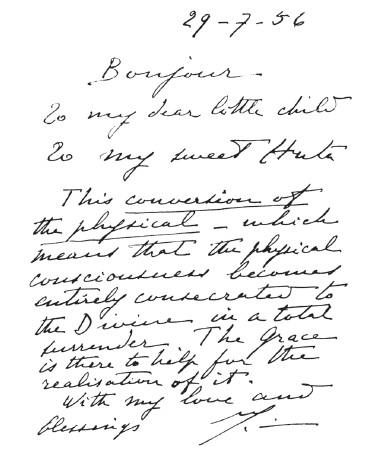 29-7-56
Bonjour -
To my dear little child
To my sweet Huta
This conversion of
the physical - which
means that the physical
consciousness becomes
entirely consecrated to
the Divine in a total
surrender. The Grace
is there to help for the
realisation of it.
With my love and
blessings